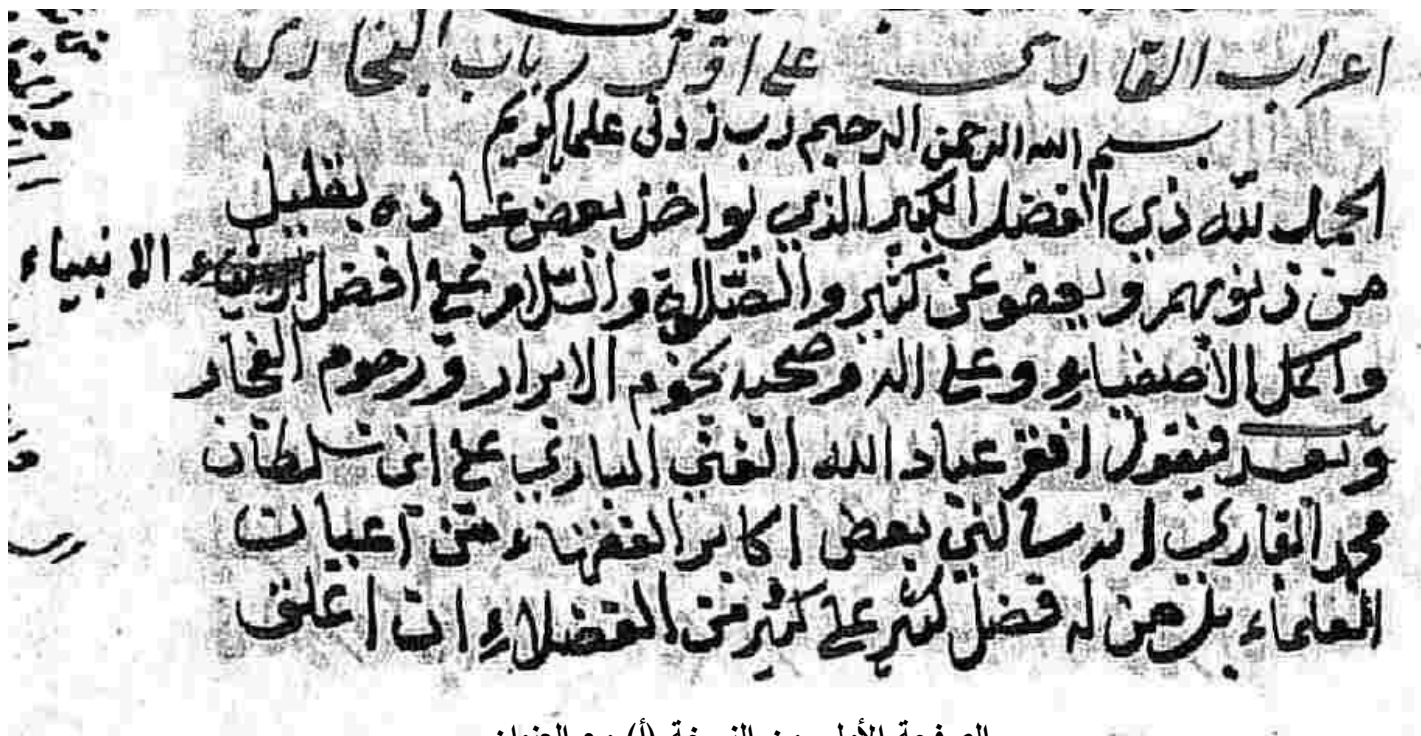 اعراب القاري على اول باب البخاري
بسم الله الرحمن الرحيم رب زدني علما يا كريم
الحمد لله ذي الفضل الكبير الذي يواخذ بعض عباده بقليل
من ذنوبهم ويعفو عن كثير والصلاة والسلام على افضل الانبياء
واكمل الاصفياء وعلى اله وصحبه نجوم الابرار ورجوم الفجار
وبعد فيقول افقر عباد الله الغني الباري علي ابن سلطان
محمد القاري انه سالني بعض اكابر الفقهاء من اعيان
العلماء بل من له فضل كثير على كثير من الفضلاء ان اعلق
الصفحة الأولى من النسخة (أ) مع العنوان